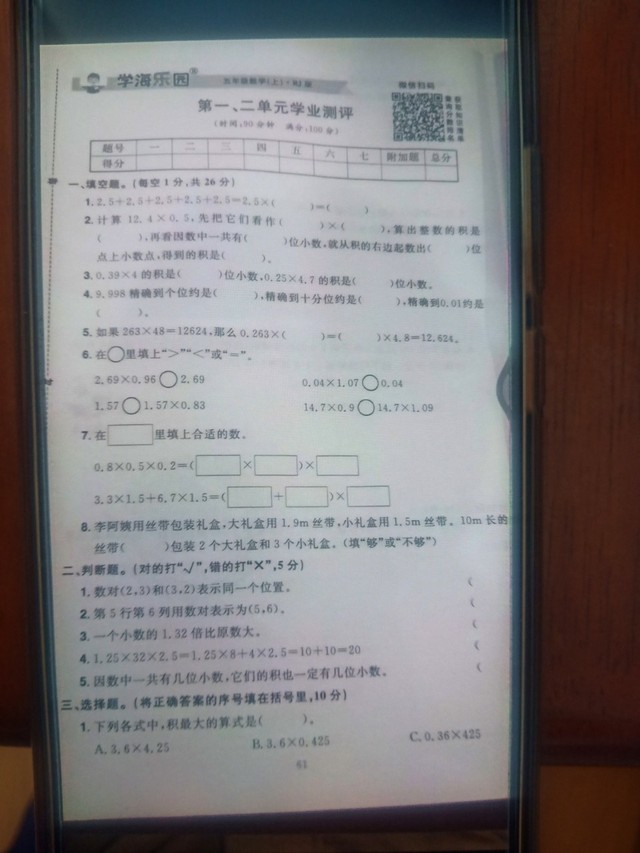 学海乐园®
五年级数学(上)·RJ版
微信扫码
第一、二单元学业测评
(时间:90分钟 满分:100分)
题号 一 二 三 四 五 六 七 附加题 总分
得分
一、填空题。(每空1分,共26分)
1. 2.5+2.5+2.5+2.5+2.5=2.5×( )=( )
2. 计算12.4×0.5,先把它们看作( )×( ),算出整数的积是
( ),再看因数中一共有( )位小数,就从积的右边起数出( )位
点上小数点,得到的积是( )。
3. 0.39×4的积是( )位小数,0.25×4.7的积是( )位小数。
4. 9.998精确到个位约是( ),精确到十分位约是( ),精确到0.01约是
( )。
5. 如果263×48=12624,那么0.263×( )=( )×4.8=12.624。
6. 在○里填上“>”“<”或“=”。
2.69×0.96○2.69 0.04×1.07○0.04
1.57○1.57×0.83 14.7×0.9○14.7×1.09
7. 在□里填上合适的数。
0.8×0.5×0.2=(□×□)×□
3.3×1.5+6.7×1.5=(□+□)×□
8. 李阿姨用丝带包装礼盒,大礼盒用1.9m丝带,小礼盒用1.5m丝带。10m长的
丝带( )包装2个大礼盒和3个小礼盒。(填“够”或“不够”)
二、判断题。(对的打“√”,错的打“×”,5分)
1. 数对(2,3)和(3,2)表示同一个位置。 (
2. 第5行第6列用数对表示为(5,6)。 (
3. 一个小数的1.32倍比原数大。 (
4. 1.25×32×2.5=1.25×8+4×2.5=10+10=20 (
5. 因数中一共有几位小数,它们的积也一定有几位小数。 (
三、选择题。(将正确答案的序号填在括号里,10分)
1. 下列各式中,积最大的算式是( )。
A. 3.6×4.25 B. 3.6×0.425 C. 0.36×425
61